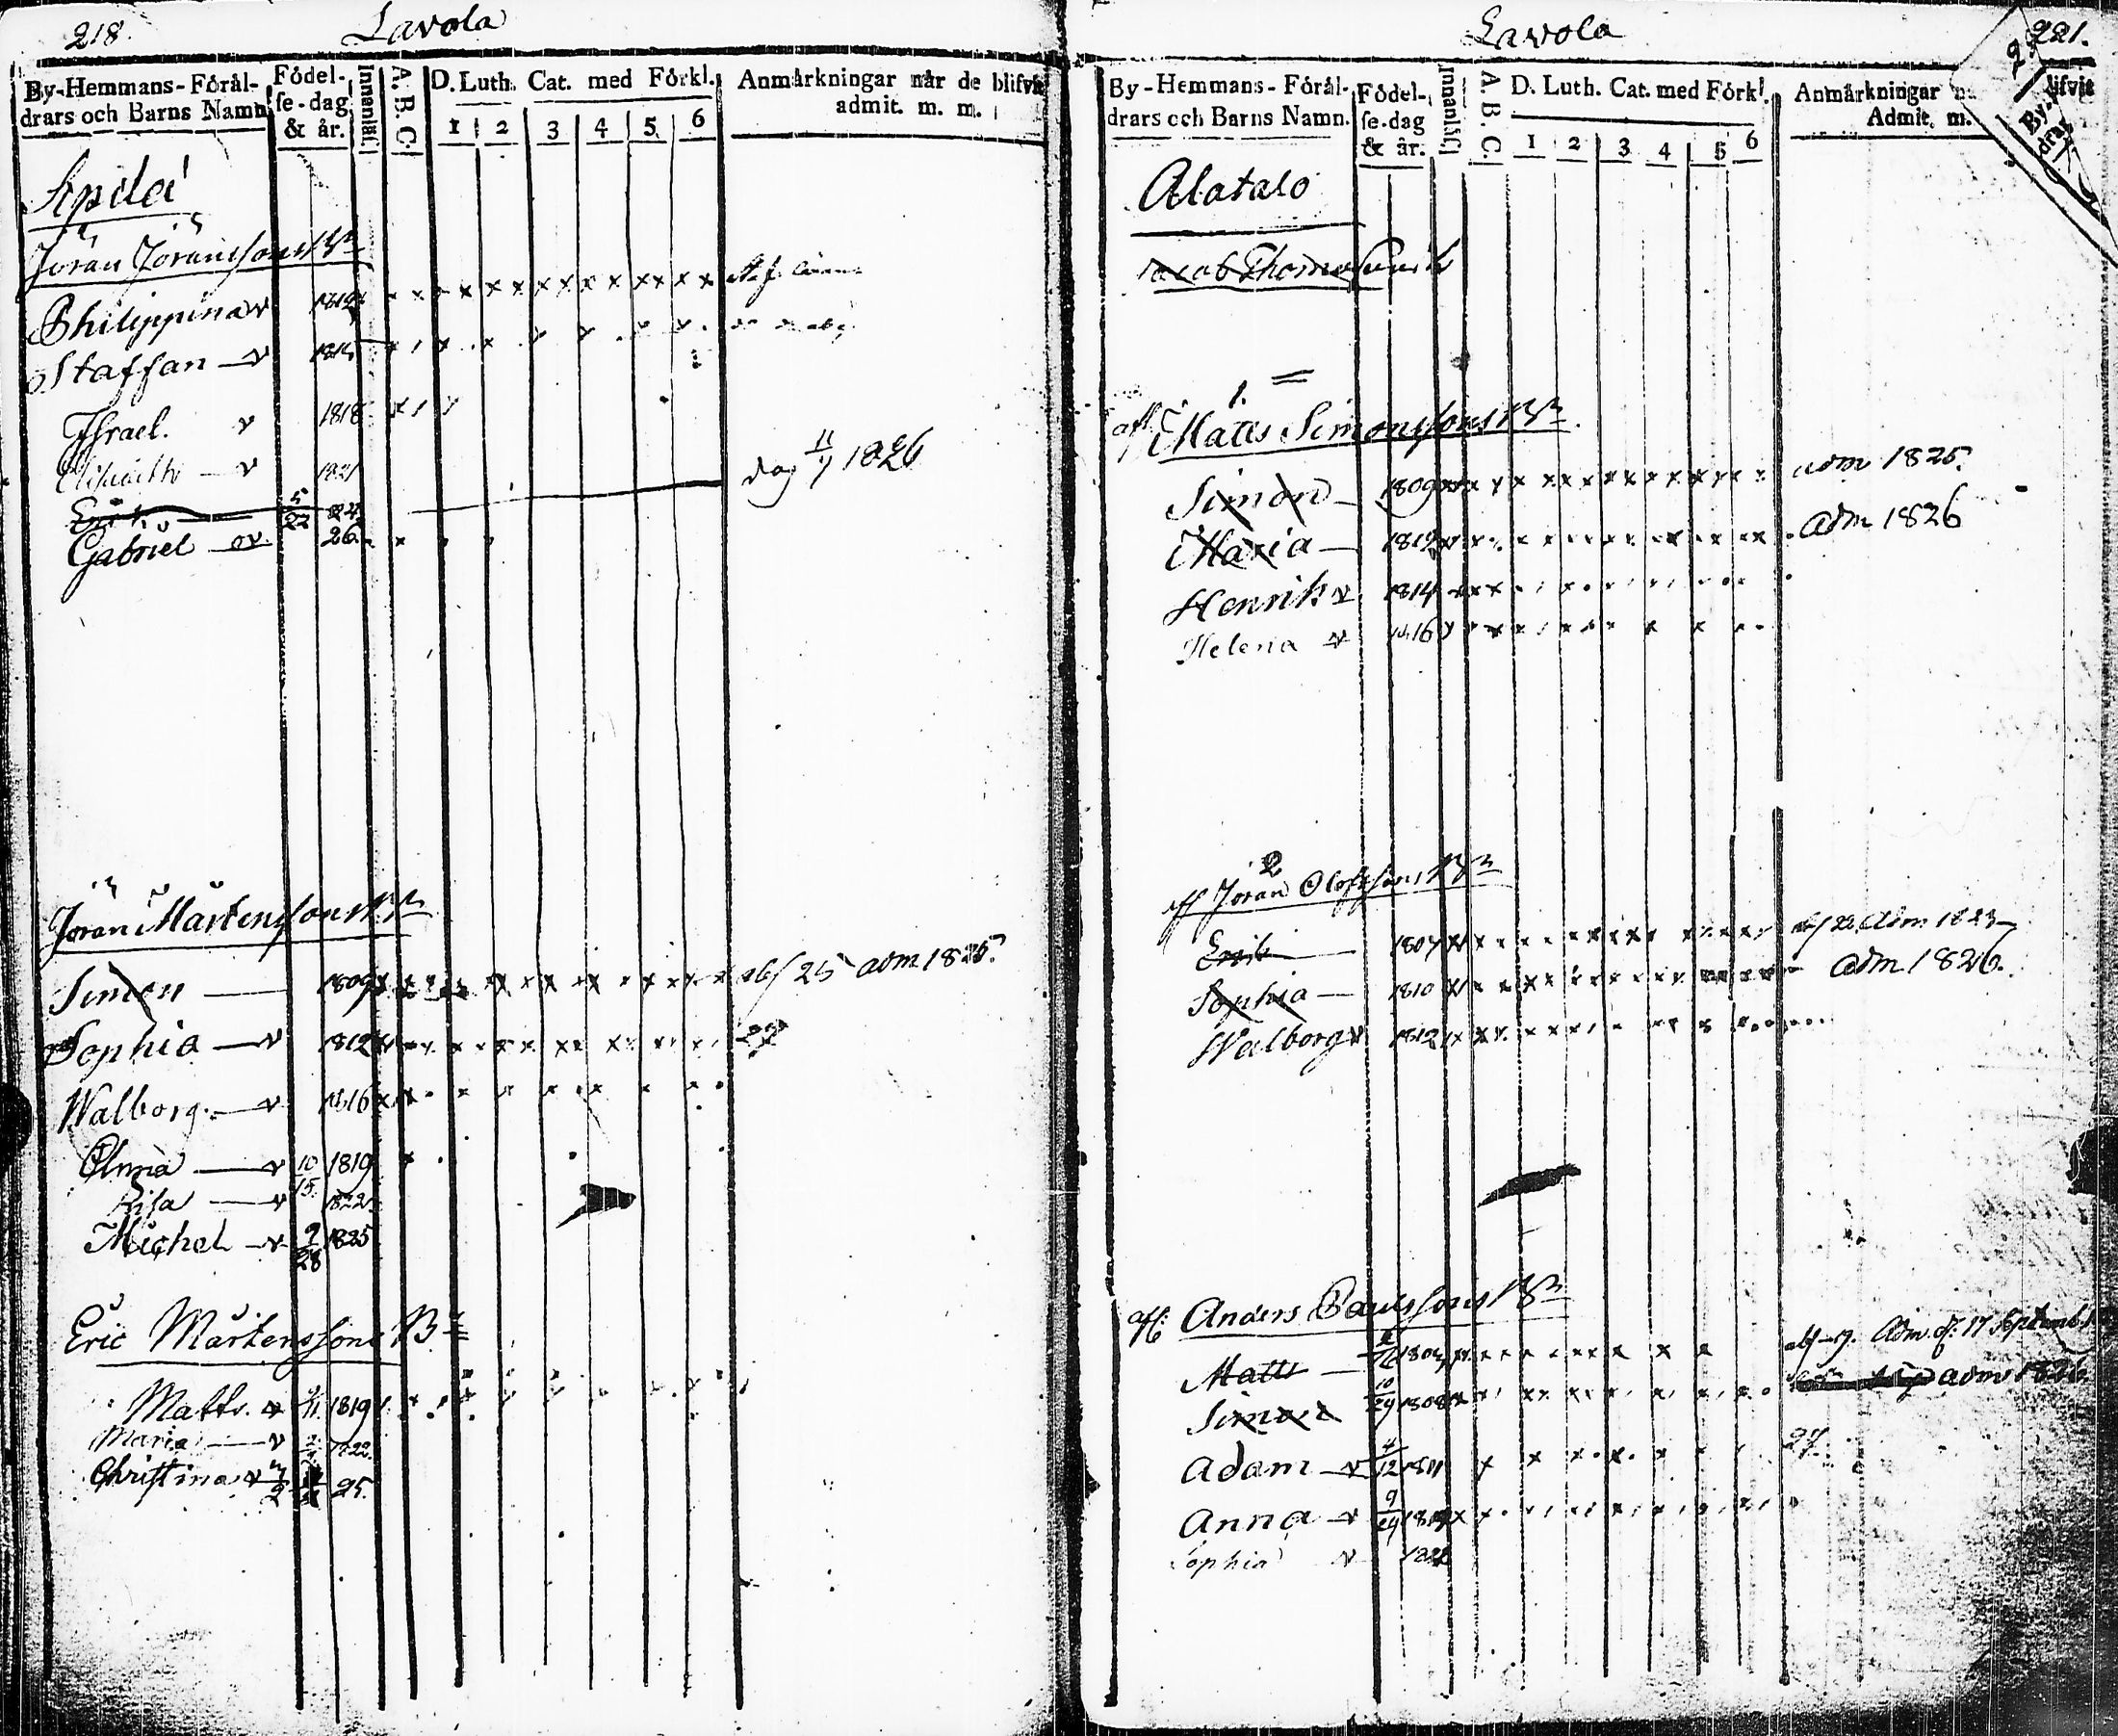 218.
Lavola
By-Hemmans-Föräl-
drars och Barns Namn
Födel-
se-dag
& år.
Innanläs.
A. B. C.
D. Luth. Cat. med Förkl.
1 2 3 4 5 6
Anmärkningar när de blifvit
admit. m. m.
Jöran Jöranssons Bn
Philippina v
Staffan v
Israel. v 1818
v 1821
Eric 5/22 24
dag 11/7 1826
Gabriel 26
Jöran Mårtenssons Bn
Simon 1809 abs 25 adm 1825.
Sophia v 1812
Walborg. v 1816
Anna v 10/15. 1819
Lisa v 1822
Michel v 9/28 1825
Eric Mårtenssons B
Matts. 1819
Maria v 1822.
Christina 25.
221.
Lavola
By-Hemmans-Föräl-
drars och Barns Namn.
Födel-
se-dag
& år.
Innanläs.
A. B. C.
D. Luth. Cat. med Förkl.
1 2 3 4 5 6
Anmärkningar
Admit. m.
Alatalo
Jacob Thomasson
1.
afl. Matts Simonssons Bn
Simon 1809 adm 1825.
Maria 1812 Adm 1826
Henrik v 1814
Helena v 1816
2
afl Jöran Olofssons Bn
Erik 1807 Adm 1823
Sophia 1810 Adm. 1826.
Walborg v 1812
afl: Anders Paulssons Bn
Matts Adm. d. 17 Septemb.
Simon 10/29 1808 adm 1826.
Adam v 4/12 1811 27.
Anna v 9/29
Sophia v